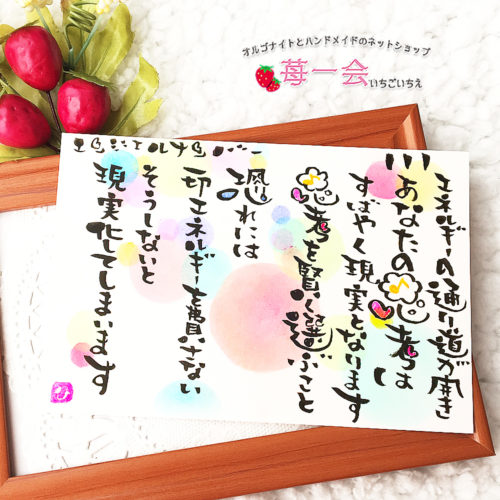 オルゴナイトとハンドメイドのネットショップ
苺一会
いちごいちえ
エンジェルナンバー
111
エネルギーの通り道が開き
あなたの思考は
すばやく現実となります
思考を賢く選ぶこと
恐れには
一切エネルギーを費さない
そうしないと
現実化してしまいます